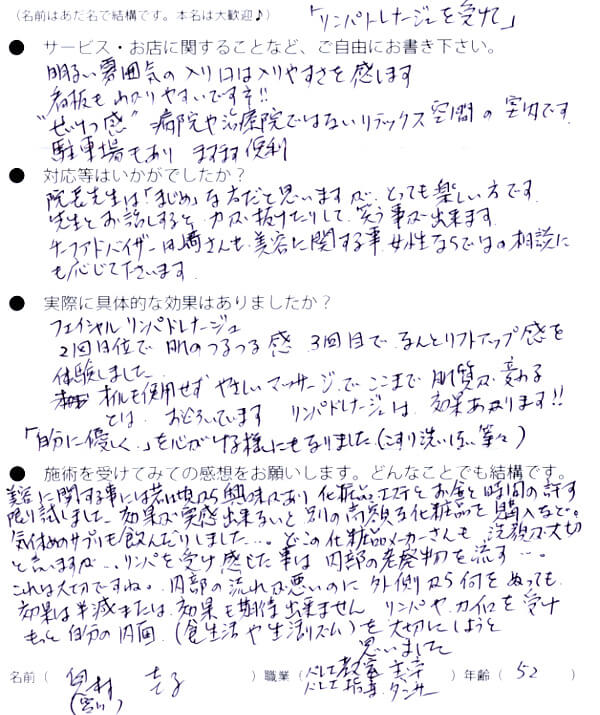 (名前はあだ名で結構です。本名は大歓迎♪) 「リンパドレナージュを受けて」
● サービス・お店に関することなど、ご自由にお書き下さい。
明るい雰囲気の入り口は入りやすさを感じます
看板もわかりやすいですネ!!
"せいけつ感" 病院や治療院ではないリラックス空間の室内です
駐車場もあり ますます便利
● 対応等はいかがでしたか?
院長先生は「まじめ」な方だと思いますが、とっても楽しい方です。
先生とお話しすると、力が抜けたりして、笑う事が出来ます
チーフアドバイザー 橋さんも、美容に関する事、女性ならではの相談に
も応じて下さいます
● 実際に具体的な効果はありましたか?
フェイシャルリンパドレナージュ
2回目位で 肌のつるつる感 3回目で なんとリフトアップ感を
体験しました
オイルを使用せず やさしいマッサージで ここまで 肌質が変わる
とは、おどろいています リンパドレナージュは 効果あります!!
「自分に優しく」を心がける様にもなりました(こすり洗い 等々)
● 施術を受けてみての感想をお願いします。どんなことでも結構です。
美容に関する事には若い頃から興味があり 化粧品、エステとお金と時間の許す
限り試しました 効果が実感出来ないと別の高額な化粧品を購入など。
気休めのサプリも飲んだりしました…。どこの化粧品メーカーさんも、洗顔が大切
と言いますが、リンパを受け感じた事は 内部の老廃物を流す…。
これは大切ですね。内部の流れが悪いのに 外側から何をぬっても
効果は半減または、効果も期待出来ません リンパや、カイロを受け
もっと自分の内面(食生活や生活リズム)を大切にしようと
思いました
名前( ) 職業( ) 年齢( 52 )